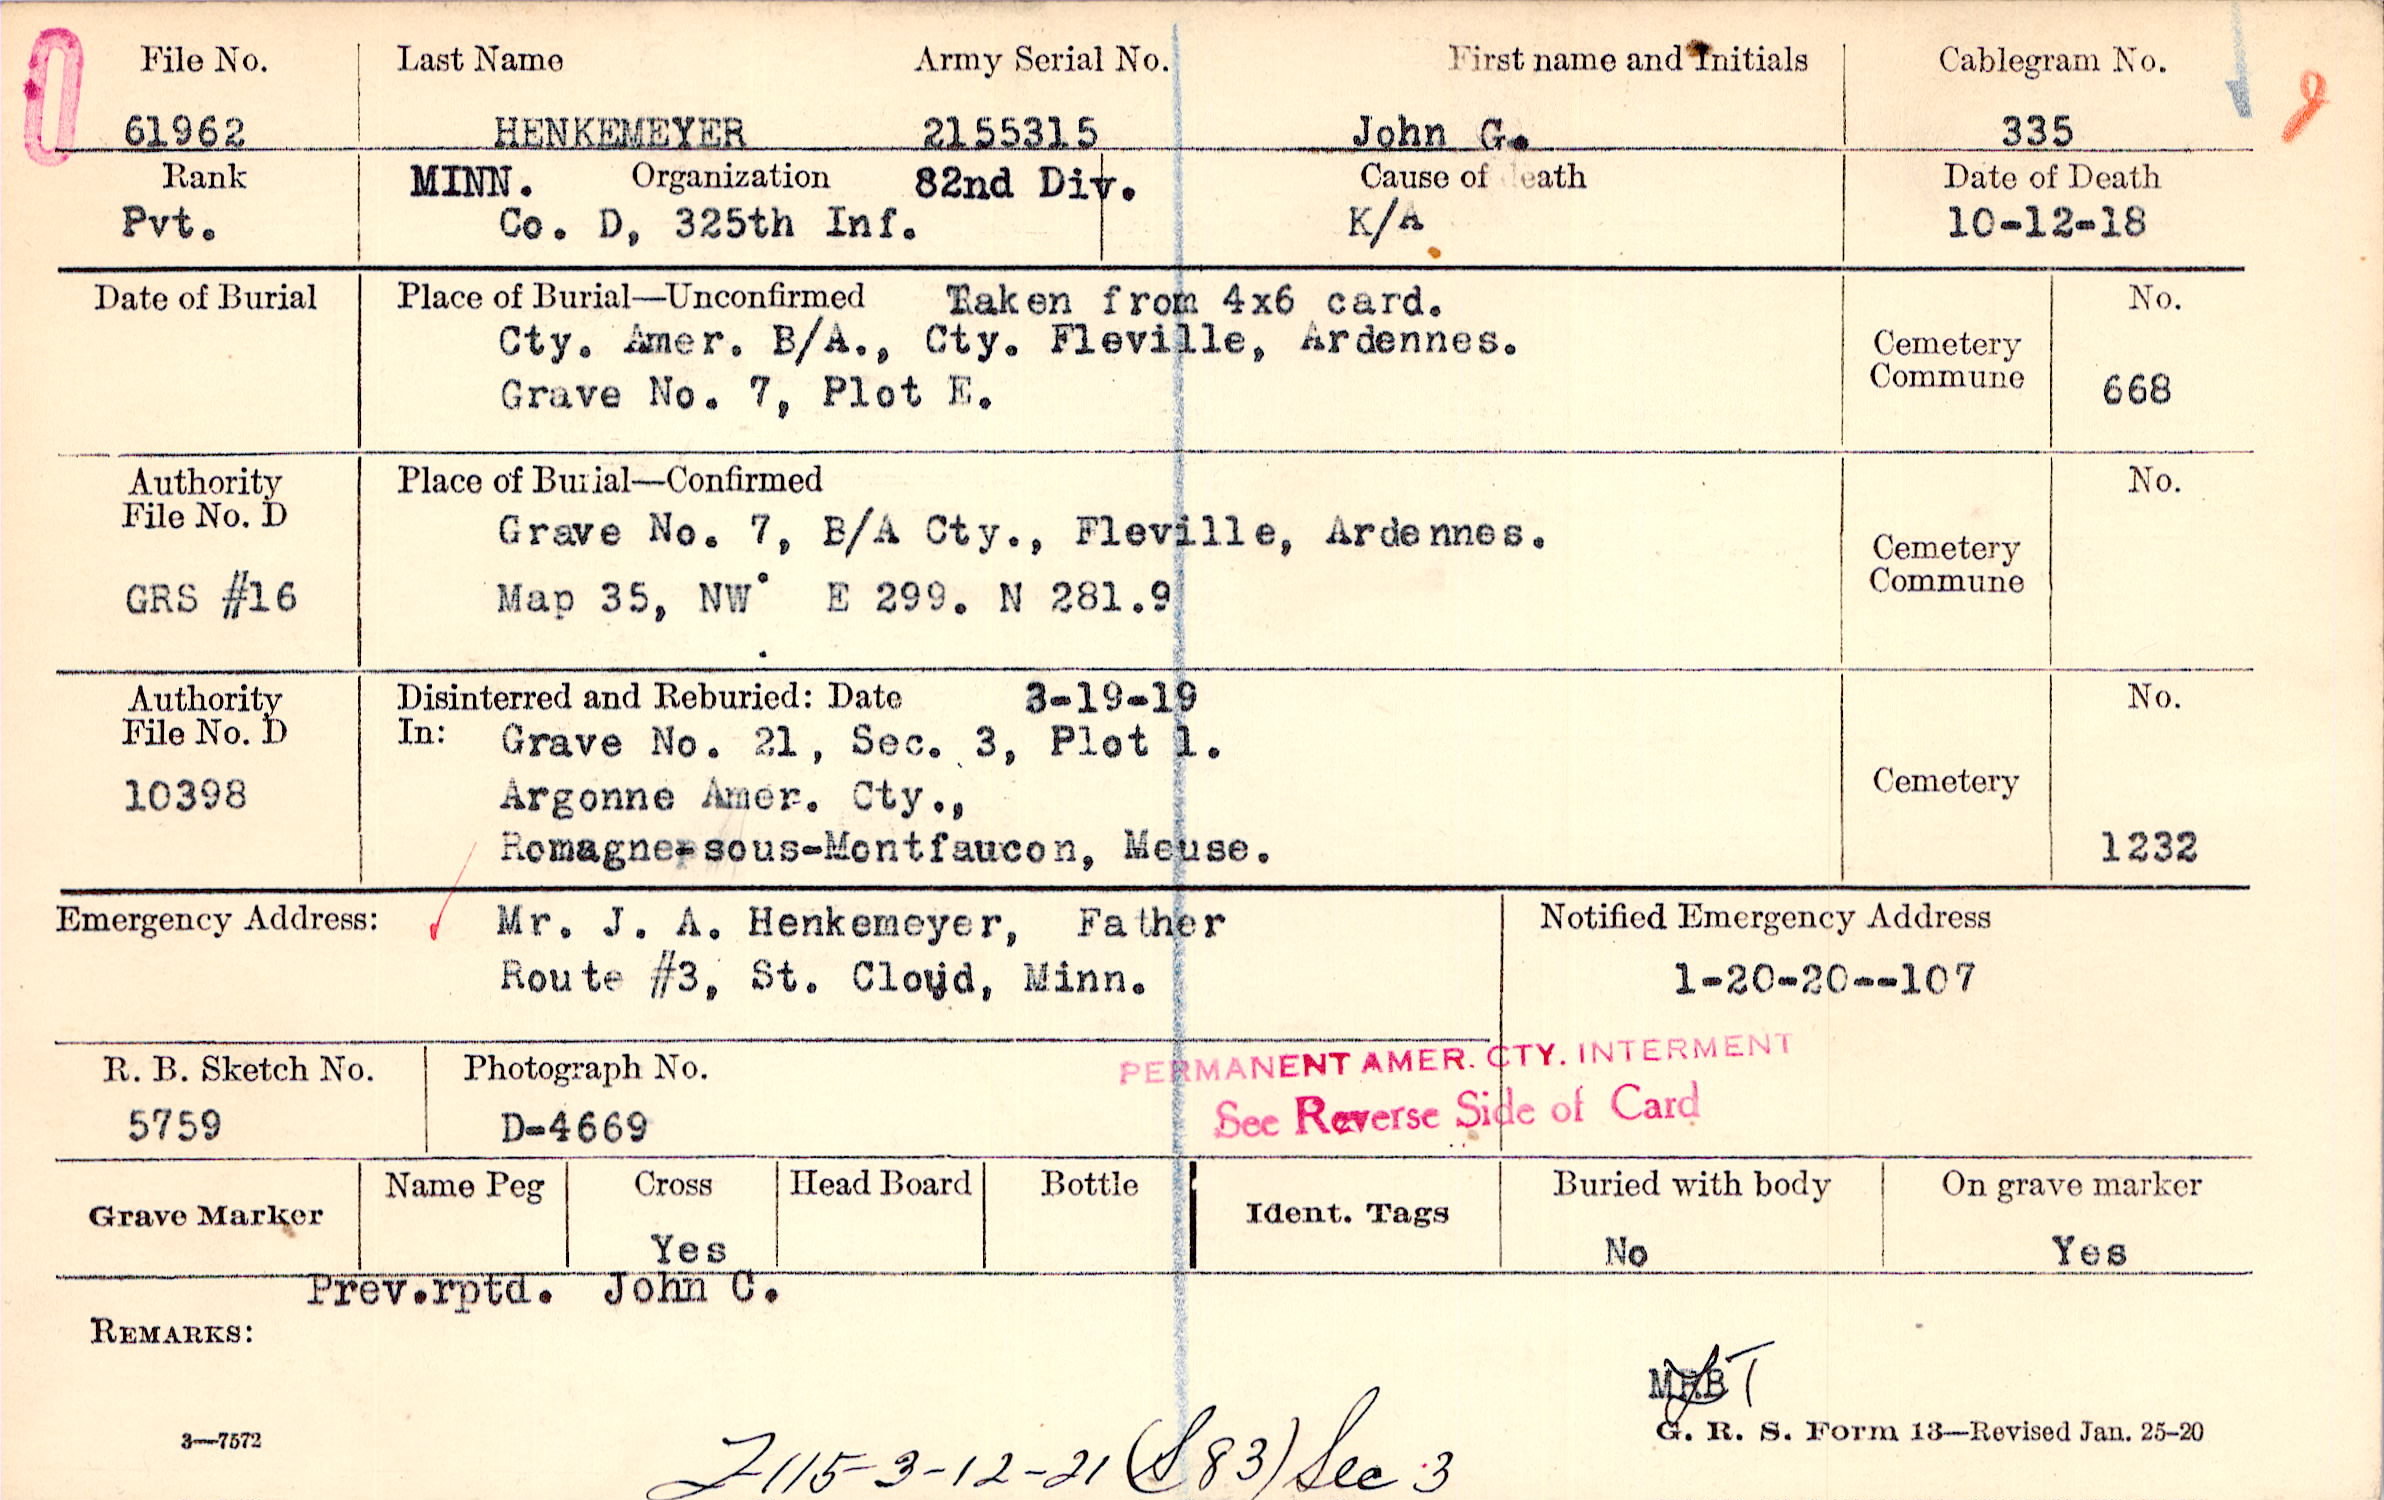 File No. Last Name Army Serial No. First name and Initials Cablegram No.
61962 HENKEMEYER 2155315 John G. 335
Rank MINN. Organization 82nd Div. Cause of eath Date of Death
Pvt. Co. D, 325th Inf. K/A 10-12-18
Date of Burial Place of Burial—Unconfirmed Taken from 4x6 card. No.
Cty. Amer. B/A., Cty. Fleville, Ardennes. Cemetery
Grave No. 7, Plot E. Commune 668
Authority Place of Burial—Confirmed No.
File No. D
Grave No. 7, B/A Cty., Fleville, Ardennes. Cemetery
GRS #16 Map 35, NW E 299. N 281.9 Commune
Authority Disinterred and Reburied: Date 3-19-19 No.
File No. D In: Grave No. 21, Sec. 3, Plot 1.
10398 Argonne Amer. Cty., Cemetery
Romagne-sous-Montfaucon, Meuse. 1232
Emergency Address: Mr. J. A. Henkemeyer, Father Notified Emergency Address
Route #3, St. Cloud, Minn. 1-20-20--107
R. B. Sketch No. Photograph No. PERMANENT AMER. CTY. INTERMENT
5759 D-4669 See Reverse Side of Card
Grave Marker Name Peg Cross Head Board Bottle Ident. Tags Buried with body On grave marker
Yes No Yes
Prev.rptd. John C.
REMARKS:
G. R. S. Form 13—Revised Jan. 25-20
3—7572
115-3-12-21 (S83) Sec 3